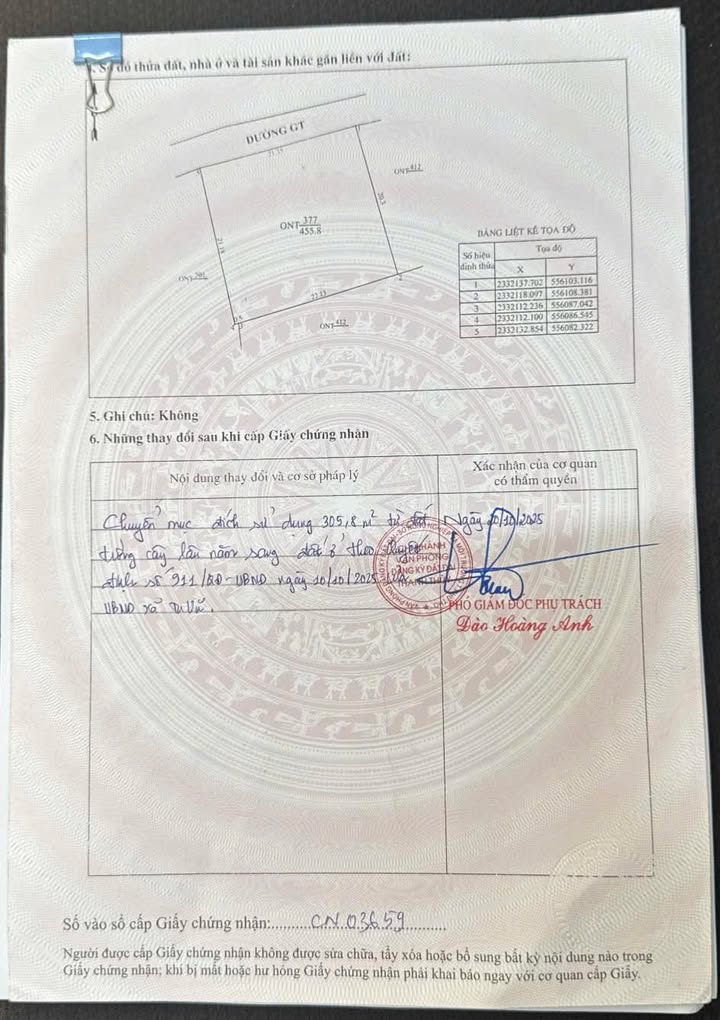 Sơ đồ thửa đất, nhà ở và tài sản khác gắn liền với đất:
ĐƯỜNG GT
21.35
1
ONT 412
20.3
ONT 377
455.8
21.18
ONT
22.13
2
0.5
4
3
ONT 412
BẢNG LIỆT KÊ TỌA ĐỘ
Số hiệu đỉnh thửa
Tọa độ
X Y
1 2332137.702 556103.116
2 2332118.097 556108.381
3 2332112.236 556087.042
4 2332112.100 556086.545
5 2332132.854 556082.322
5. Ghi chú: Không
6. Những thay đổi sau khi cấp Giấy chứng nhận
Nội dung thay đổi và cơ sở pháp lý
Xác nhận của cơ quan
có thẩm quyền
Chuyển mục đích sử dụng 305,8 m² từ đất
trồng cây lâu năm sang đất ở theo Quyết
định số 911/QĐ-UBND ngày 10/10/2025 của
UBND xã Tu Vũ.
Ngày 20/10/2025
CHI NHÁNH
VĂN PHÒNG
ĐĂNG KÝ ĐẤT ĐAI
THANH THỦY
PHÓ GIÁM ĐỐC PHỤ TRÁCH
Đào Hoàng Anh
Số vào sổ cấp Giấy chứng nhận:..........CN.03659..........
Người được cấp Giấy chứng nhận không được sửa chữa, tẩy xóa hoặc bổ sung bất kỳ nội dung nào trong
Giấy chứng nhận; khi bị mất hoặc hư hỏng Giấy chứng nhận phải khai báo ngay với cơ quan cấp Giấy.